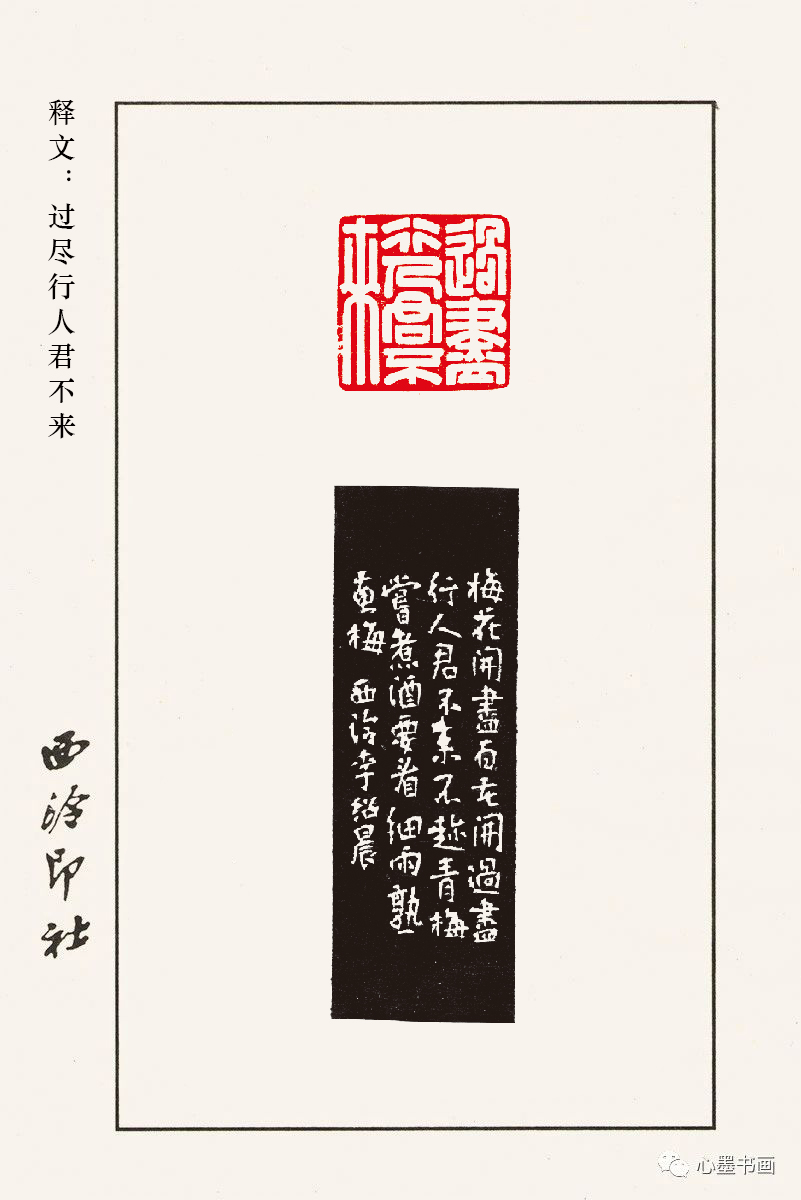 释文：过尽行人君不来
過盡
行人君不
来
梅花開盡百花開過盡
行人君不來不趂青梅
嘗煮酒要看細雨熟
黄梅 西泠李紹晨
西泠印社
心墨书画